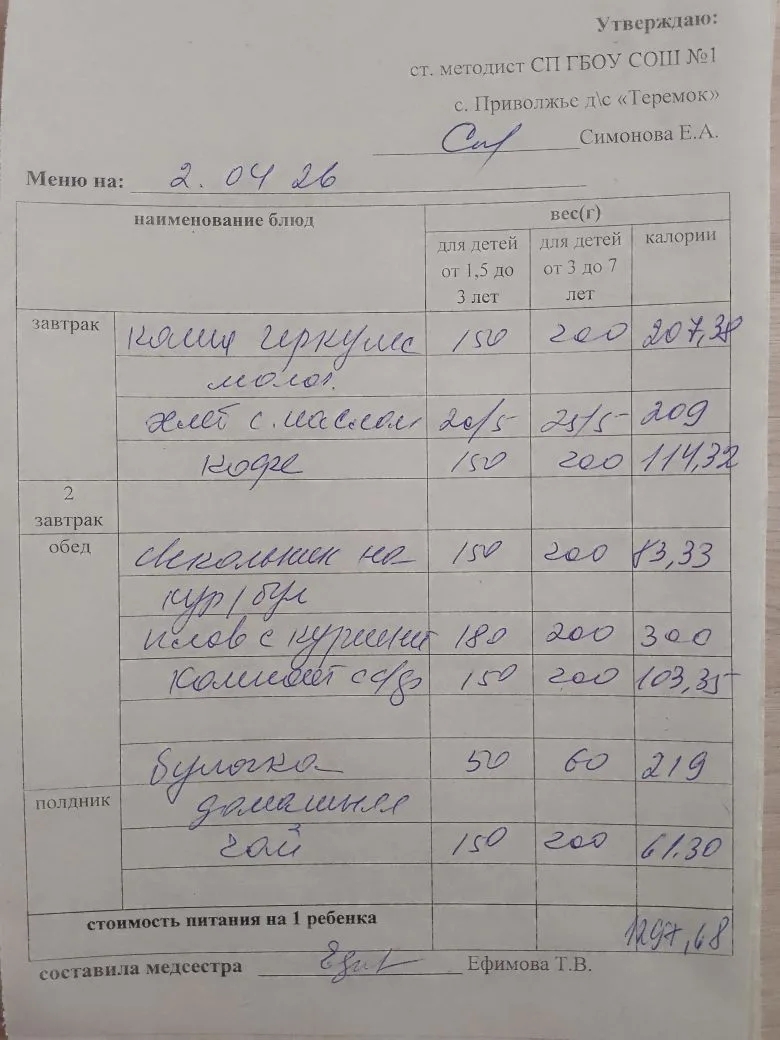 Утверждаю:
ст. методист СП ГБОУ СОШ №1
с. Приволжье д\с «Теремок»
Симонова Е.А.
Меню на: 2. 04 26
наименование блюд вес(г)
для детей от 1,5 до 3 лет для детей от 3 до 7 лет калории
завтрак каша геркулес 150 200 207,38
молоч.
хлеб с маслом 20/5 25/5 209
кофе 150 200 114,32
2 завтрак
обед свекольник на 150 200 83,33
кур/бул
плов с курицей 180 200 300
компот с/ф 150 200 103,35
булочка 50 60 219
полдник домашняя
чай 150 200 61.30
стоимость питания на 1 ребенка 1297,68
составила медсестра Ефимова Т.В.